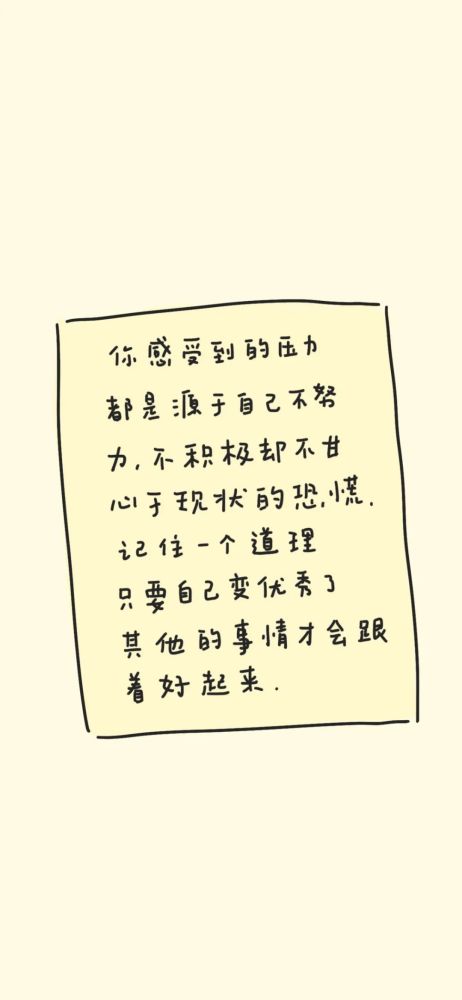 你感受到的压力
都是源于自己不努
力,不积极却不甘
心于现状的恐慌.
记住一个道理
只要自己变优秀了
其他的事情才会跟
着好起来.